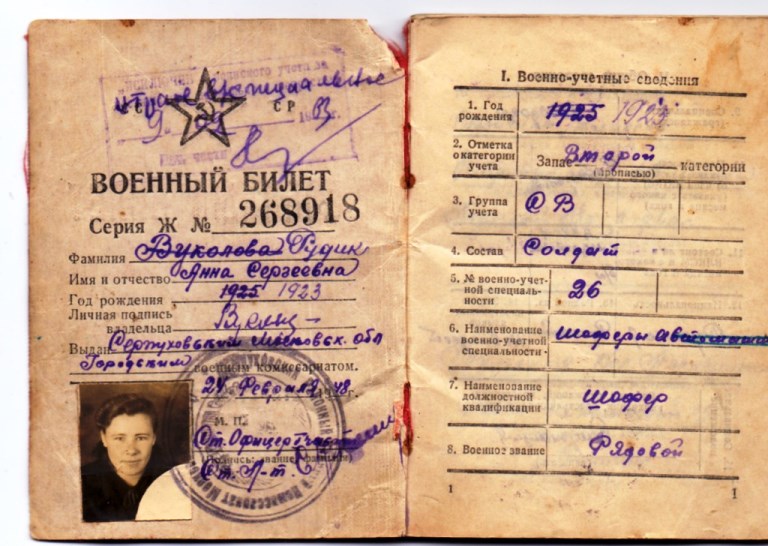 воинского учета за
СС СР
ВОЕННЫЙ БИЛЕТ
Серия Ж № 268918
Фамилия Вуколова Рудик
Имя и отчество Анна Сергеевна
Год рождения 1925 1923
Личная подпись
владельца
Выдан Серпуховский Московск. обл
Городским военным комиссариатом.
24 Февраля 1948 г.
М. П.
Ст. Офицер 1 части
(Подпись, звание, фамилия)
Ст. Л-т.
I. Военно-учетные сведения
1. Год
рождения 1925 1923
2. Отметка
о категории
учета Запас Второй категории
(прописью)
3. Группа
учета СВ
4. Состав Солдат
5. № военно-учет-
ной специаль-
ности 26
6. Наименование
военно-учетной
специальности Шоферы
7. Наименование
должностной
квалификации Шофер
8. Военное звание Рядовой
1
1